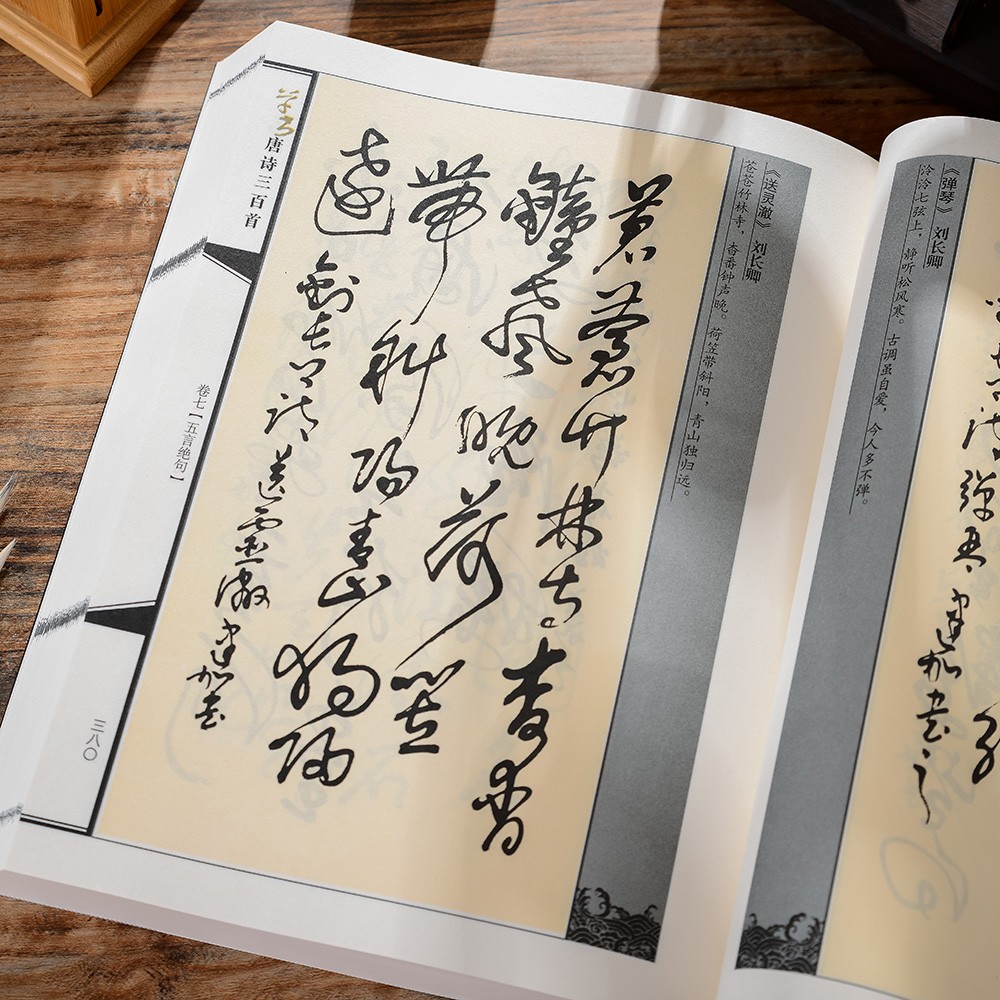 《弹琴》 刘长卿
泠泠七弦上，静听松风寒。古调虽自爱，今人多不弹。
《送灵澈》 刘长卿
苍苍竹林寺，杳番钟声晚。荷笠带斜阳，青山独归远。
蒼蒼竹林寺杳杳
鐘聲晚荷笠
帶斜陽青山獨歸
遠 劉長卿詩送靈澈 建加書
草书
唐诗三百首
卷七【五言绝句】
三八〇